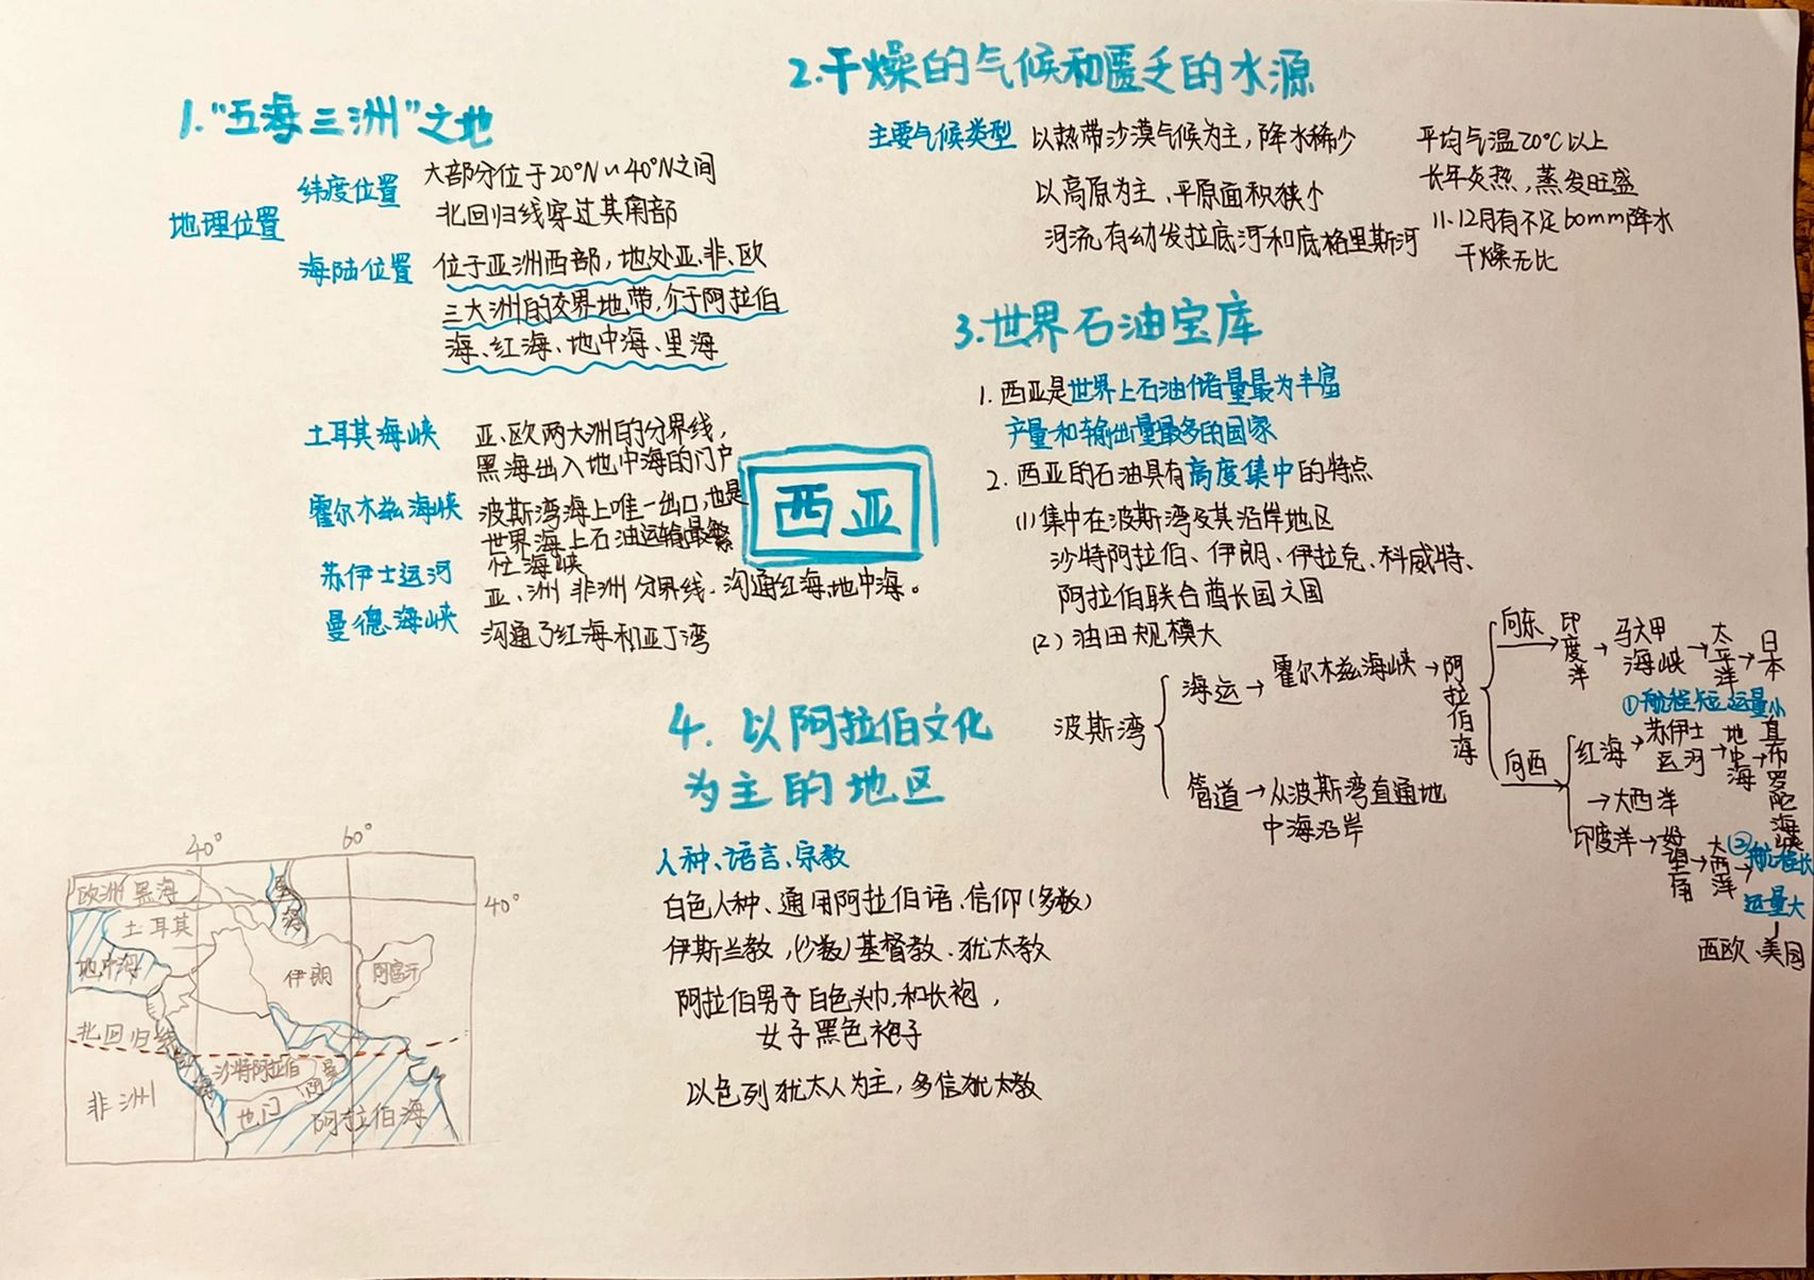 1."五海三洲"之地
地理位置
纬度位置
大部分位于20°N~40°N之间
北回归线穿过其南部
海陆位置
位于亚洲西部,地处亚、非、欧
三大洲的交界地带,介于阿拉伯
海、红海、地中海、里海
土耳其海峡
亚、欧两大洲的分界线,
黑海出入地中海的门户
霍尔木兹海峡
波斯湾海上唯一出口,也是
世界海上石油运输最繁
忙海峡
苏伊士运河
亚、洲非洲分界线.沟通红海,地中海。
曼德海峡
沟通了红海和亚丁湾
西亚
2.干燥的气候和匮乏的水源
主要气候类型
以热带沙漠气候为主,降水稀少
以高原为主、平原面积狭小
河流有幼发拉底河和底格里斯河
平均气温20℃以上
长年炎热,蒸发旺盛
11.12月有不足60mm降水
干燥无比
3.世界石油宝库
1.西亚是世界上石油储量最为丰富
产量和输出量最多的国家
2.西亚的石油具有高度集中的特点
(1)集中在波斯湾及其沿岸地区
沙特阿拉伯、伊朗、伊拉克、科威特、
阿拉伯联合酋长国六国
(2)油田规模大
波斯湾
海运→霍尔木兹海峡→阿拉伯海
向东→印度洋→马六甲海峡→太平洋→日本
①航程短运量小
向西
红海→苏伊士运河→地中海→直布罗陀海峡
→大西洋
印度洋→好望角→大西洋→
②航程长
运量大
西欧、美国
管道→从波斯湾直通地
中海沿岸
4.以阿拉伯文化
为主的地区
人种、语言、宗教
白色人种、通用阿拉伯语、信仰(多数)
伊斯兰教,(少数)基督教、犹太教
阿拉伯男子白色头巾,和长袍,
女子黑色袍子
以色列犹太人为主,多信犹太教
40°
60°
40°
欧洲
黑海
里海
土耳其
地中海
伊朗
阿富汗
北回归线
沙特阿拉伯
阿曼
红海
也门
非洲
阿拉伯海